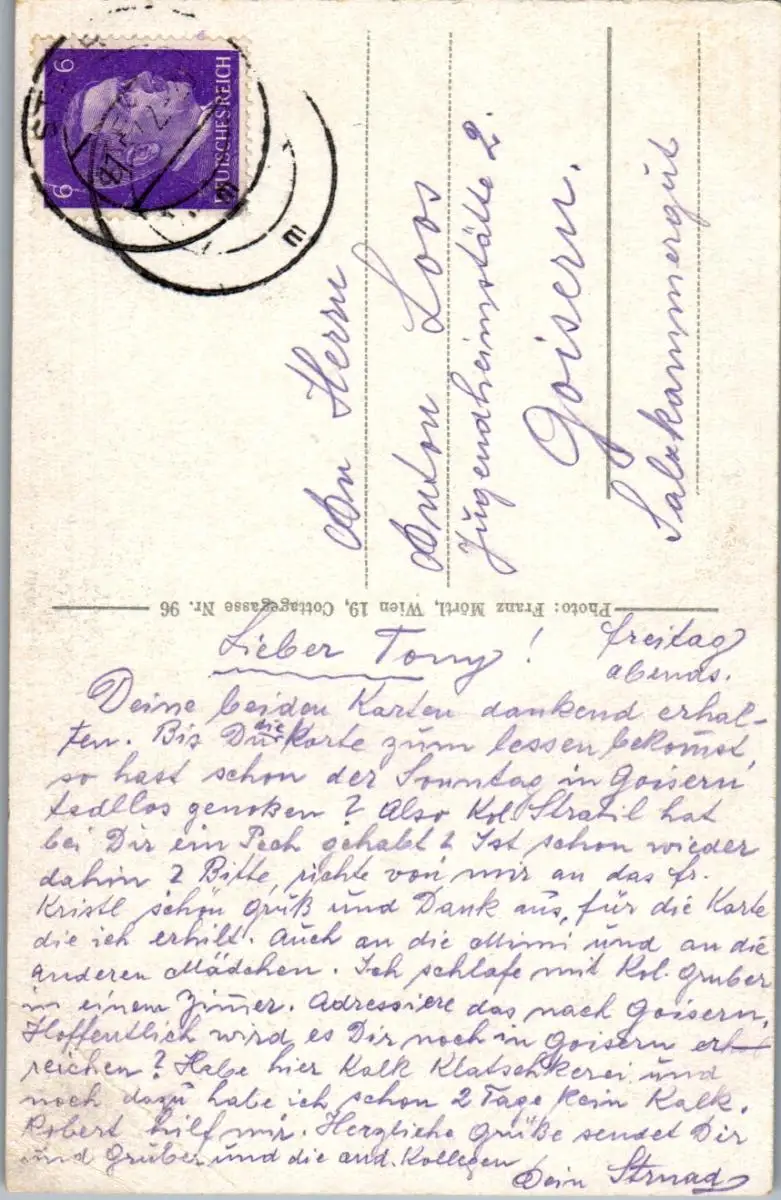 6 6
DEUTSCHES REICH
An Herrn
Anton Loos
Jugendheimstätte 2.
Goisern.
Salzkammergut
Photo: Franz Mörtl, Wien 19, Cottagegasse Nr. 96
Lieber Tony! Freitag
abends.
Deine beiden Karten dankend erhal-
ten. Bis Du die Karte zum lessen bekomst,
so hast schon der Sonntag in Goisern
tadllos genoßen? Also Kol. Stratil hat
bei Dir ein Pech gehabt? Ist schon wieder
dahin? Bitte, richte von mir an das Fr.
Kristl schön Grüß und Dank aus, für die Karte
die ich erhilt. Auch an die Mimi und an die
anderen Mädchen. Ich schlafe mit Kol. Gruber
in einem Zimer. Adressiere das nach Goisern,
Hoffentlich wird es Dir noch in Goisern er-
reichen? Habe hier Kalk Klatschkerei und
noch dazu habe ich schon 2 Tage kein Kalk.
Robert hilf mir. Herzliche Grüße sendet Dir
und Gruber und die and. Kollegen
Dein Strnad